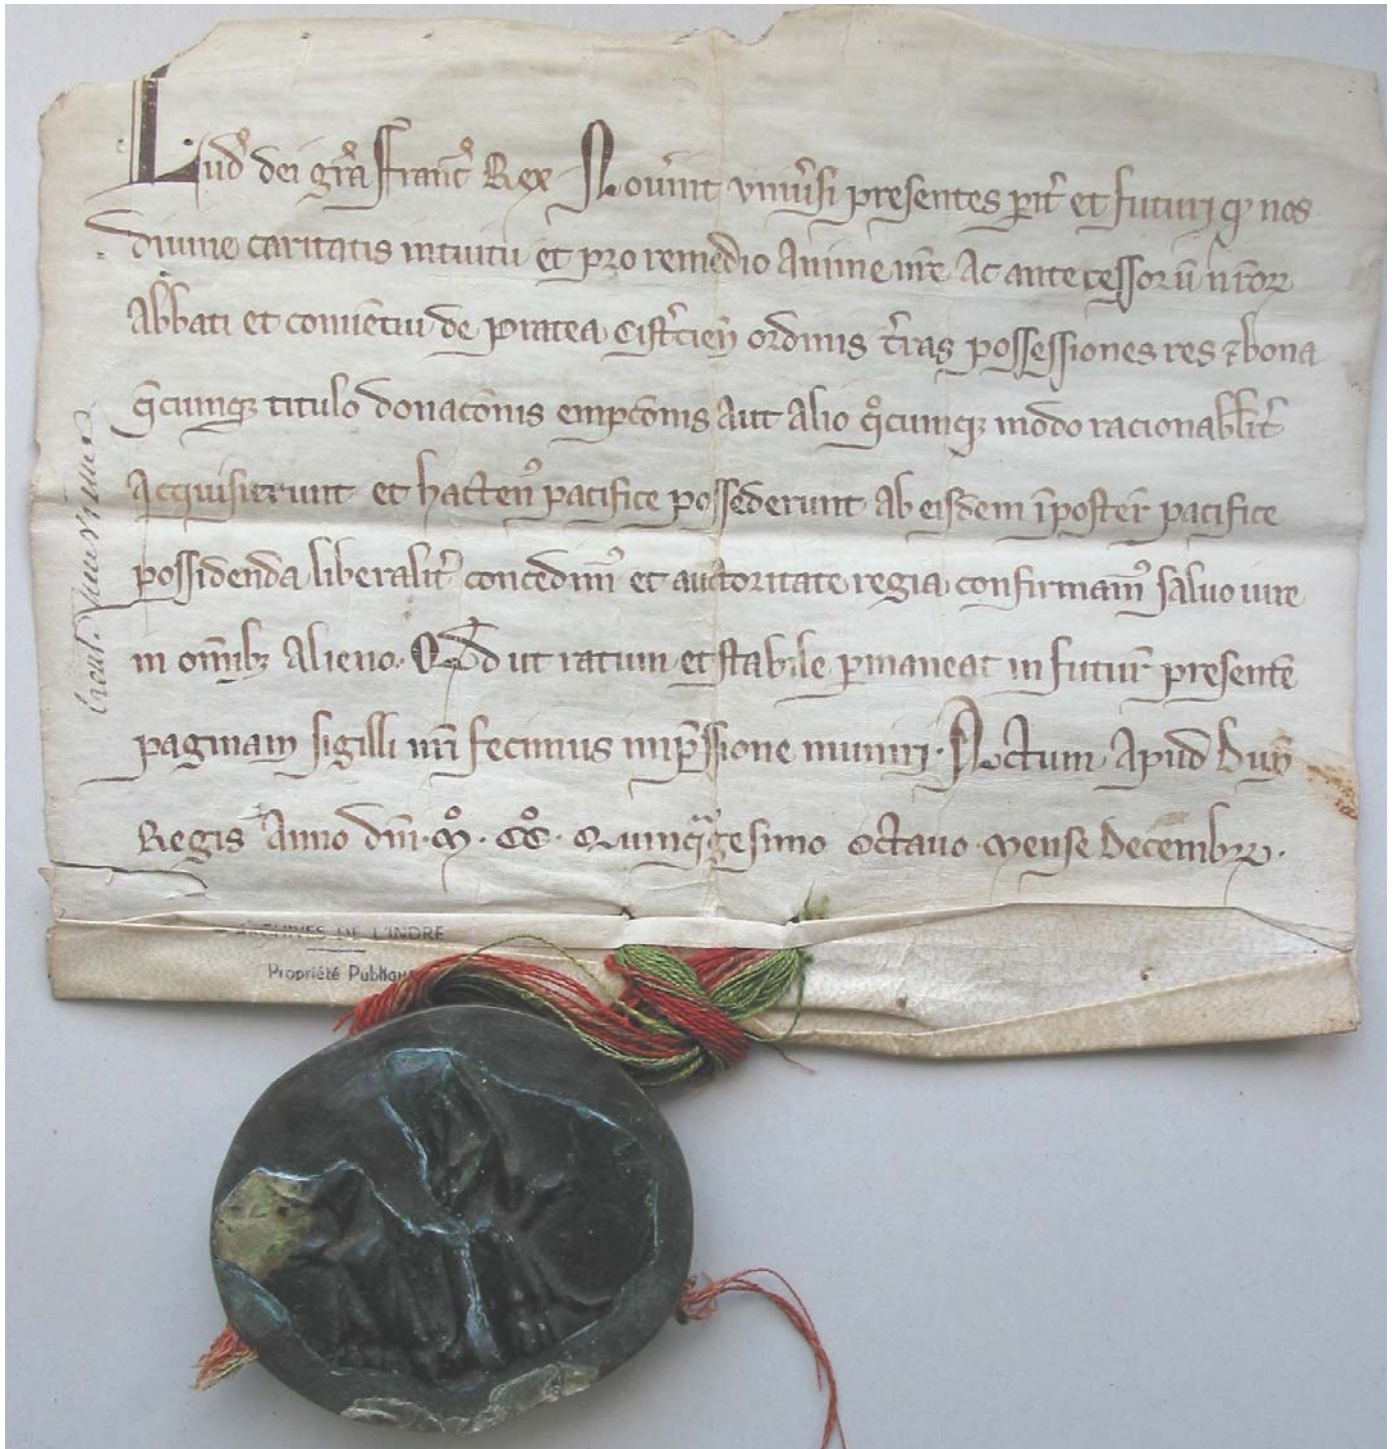 Lud̉ dei gr̃a Franc̉ Rex Nouĩnt vniũsi presentes pit̃ et futuri qꝫ nos
diuine caritatis intuitu et pro remedio Anime nr̃e Ac antecessorũ nr̃orꝝ
Abb̃ati et conuẽtui de Pratea Cist̃cieñ ordinis t̃ras possessiones res ⁊ bona
q̃cumqꝫ titulo donac̃onis empc̃onis Aut Alio q̊cumqꝫ modo racionabl̃it̃
Acquisierunt et hacten̉ pacifice possederunt Ab eisdem ĩposter̃ pacifice
possidenda liberalit̃ concedim̉ et auctoritate regia confirmam̉ saluo iure
in om̃ibꝫ Alieno. Qd̃ ut ratum et stabile ꝑmaneat in futur̃ presentẽ
paginam sigilli nr̃i fecimus imp̃ssione muniri. Actum Apud Duñ
Regis Anno dñi. m̊. cc̊. Quinq̃gesimo Octauo mense Decembrꝭ.
ARCHIVES DE L'INDRE
Propriété Publique